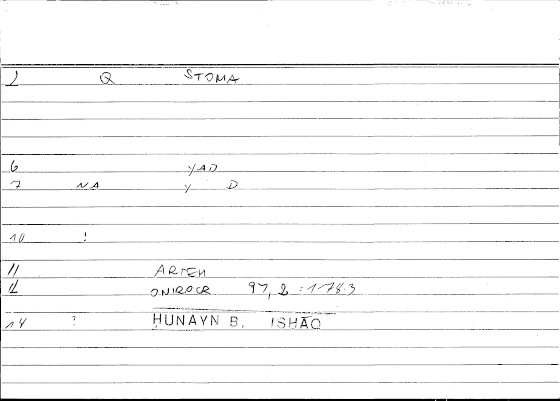 1 Q STOMA
6 YAD
7 NA Y D
10 !
11 ARTEM
12 ONIROCR 97, 2 : 178.3
14 ? HUNAYN B. ISHĀQ